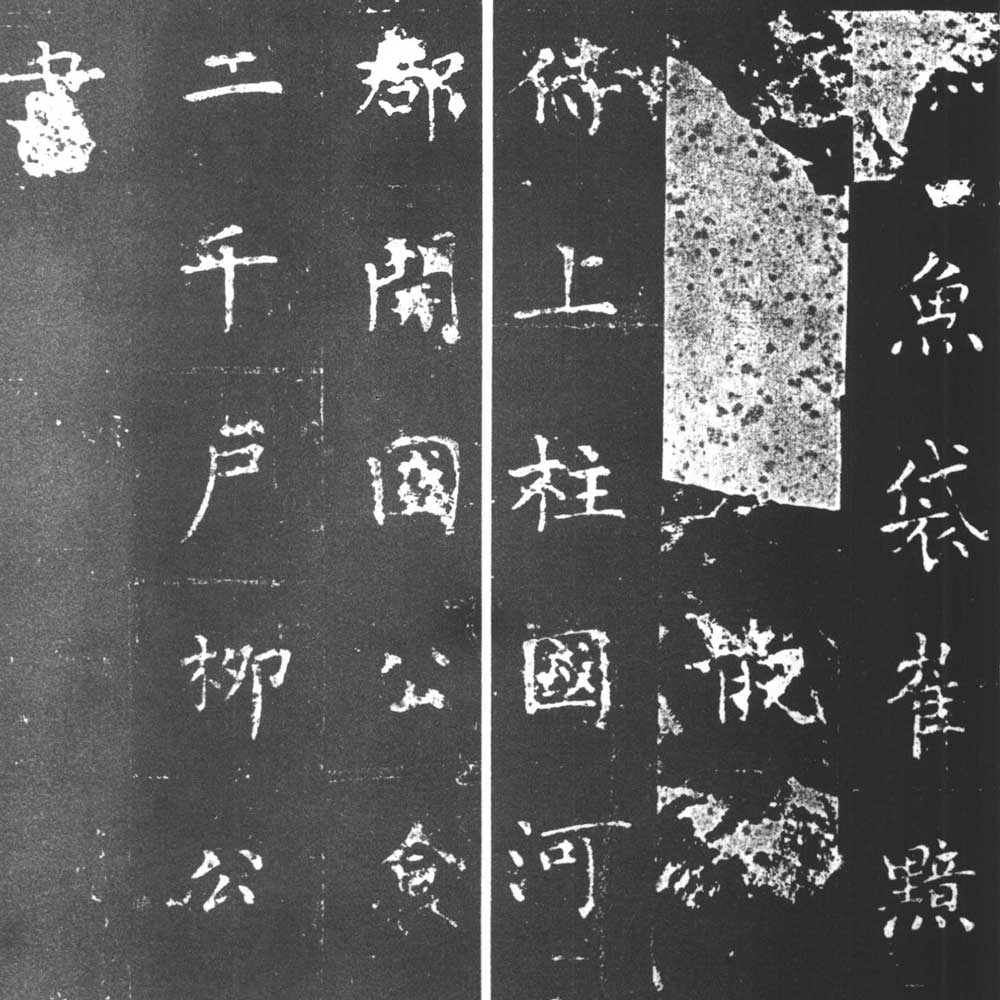 魚袋崔黯
散
侍上柱國河
都開國公食
二千戶柳公
書